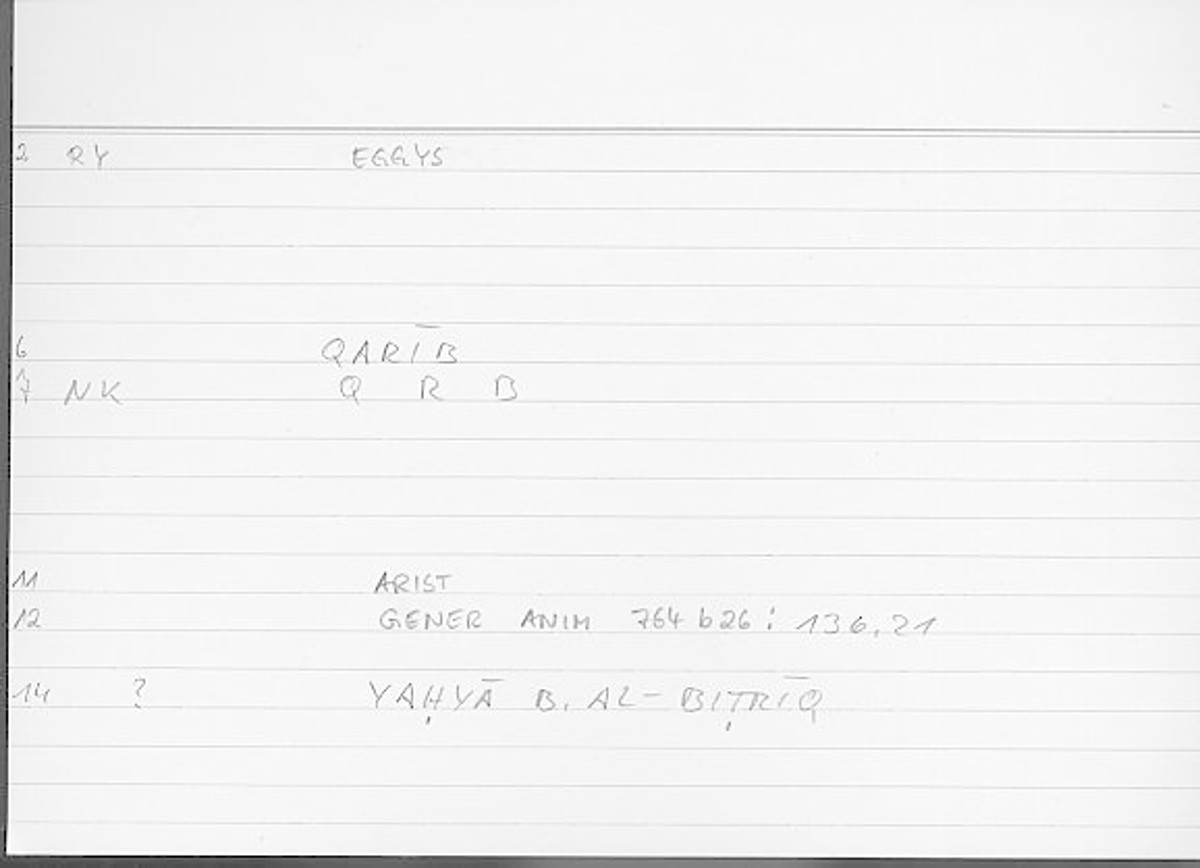 2 RY EGGYS
6 QARĪB
7 NK Q R B
11 ARIST
12 GENER ANIM 764 b 26 : 136,21
14 ? YAḤYĀ B. AL-BIṬRĪQ